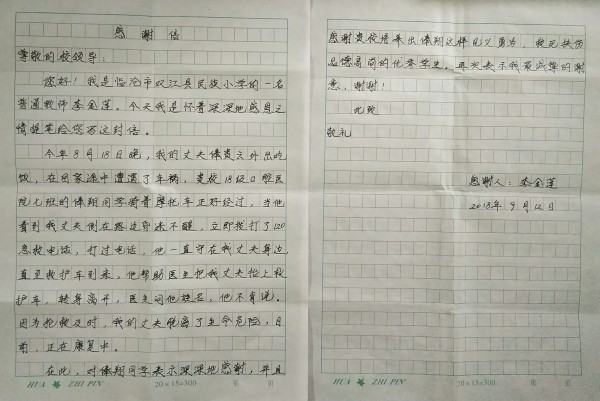 感谢信
尊敬的校领导：
您好！我是临沧市双江县民族小学的一名
普通教师李金莲。今天我是怀着深深地感恩之
情提笔给您写这封信。
今年8月18日晚，我的丈夫俸贵文外出吃
饭，在回家途中遭遇了车祸，贵校18级口腔医
院七班的俸翔同学骑着摩托车正好经过，当他
看到我丈夫倒在路边昏迷不醒，立即拨打了120
急救电话，打过电话，他一直守在我丈夫身边，
直至救护车到来，他帮助医生把我丈夫抬上救
护车，转身离开，医生问他姓名，他不肯说。
因为抢救及时，我的丈夫脱离了生命危险，目
前，正在康复中。
在此，对俸翔同学表示深深地感谢，并且
HUA ZHI PIN 20×15=300 第 页
感谢贵校培养出俸翔这样见义勇为，救死扶伤
品德高尚的优秀学生。再次表示我最诚挚的谢
意，谢谢！
此致
敬礼
感谢人：李金莲
2018年9月12日
HUA ZHI PIN 20×15=300 第 页